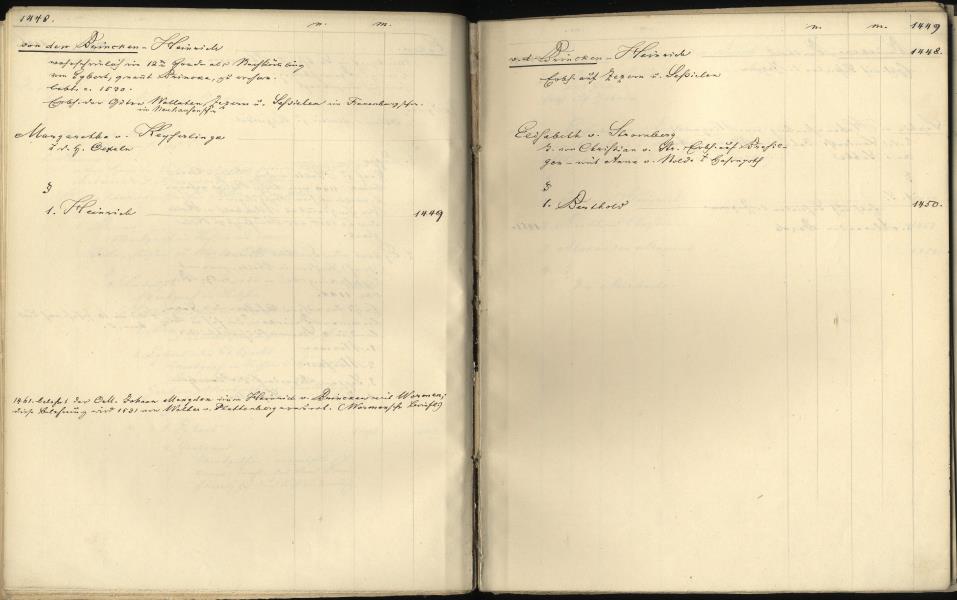 1448.
n. m.
von den Brincken - Heinrich
wahrscheinlich im 12ten Grade als Nachkömmling
von Egbert, genannt Brincke, zu
lebt c. 1530.
Erbh. der Güter Wallaten, Zezern u. Seßielen im Frauenburgschen
im Neuhausenschen
Margaretha v. Keyserlingk
T. d. H. Oxeln
3
1. Heinrich 1449
1461. belehnt der O.M. Johann Mengden einen Heinrich v. Brincken mit Wormen;
diese Belehnung wird 1531 von Wolter v. Plettenberg (Wormensche Briefl.)
n. m. 1449
v. d. Brincken - Heinrich 1448.
Erbh. auf Zezern u. Seßielen
Elisabeth v. Stromberg
T. von Christian v. Str. - Erbh. auf
gen - mit Anna v. Nolde a Hasenpoth
3
1. Berthold 1450.